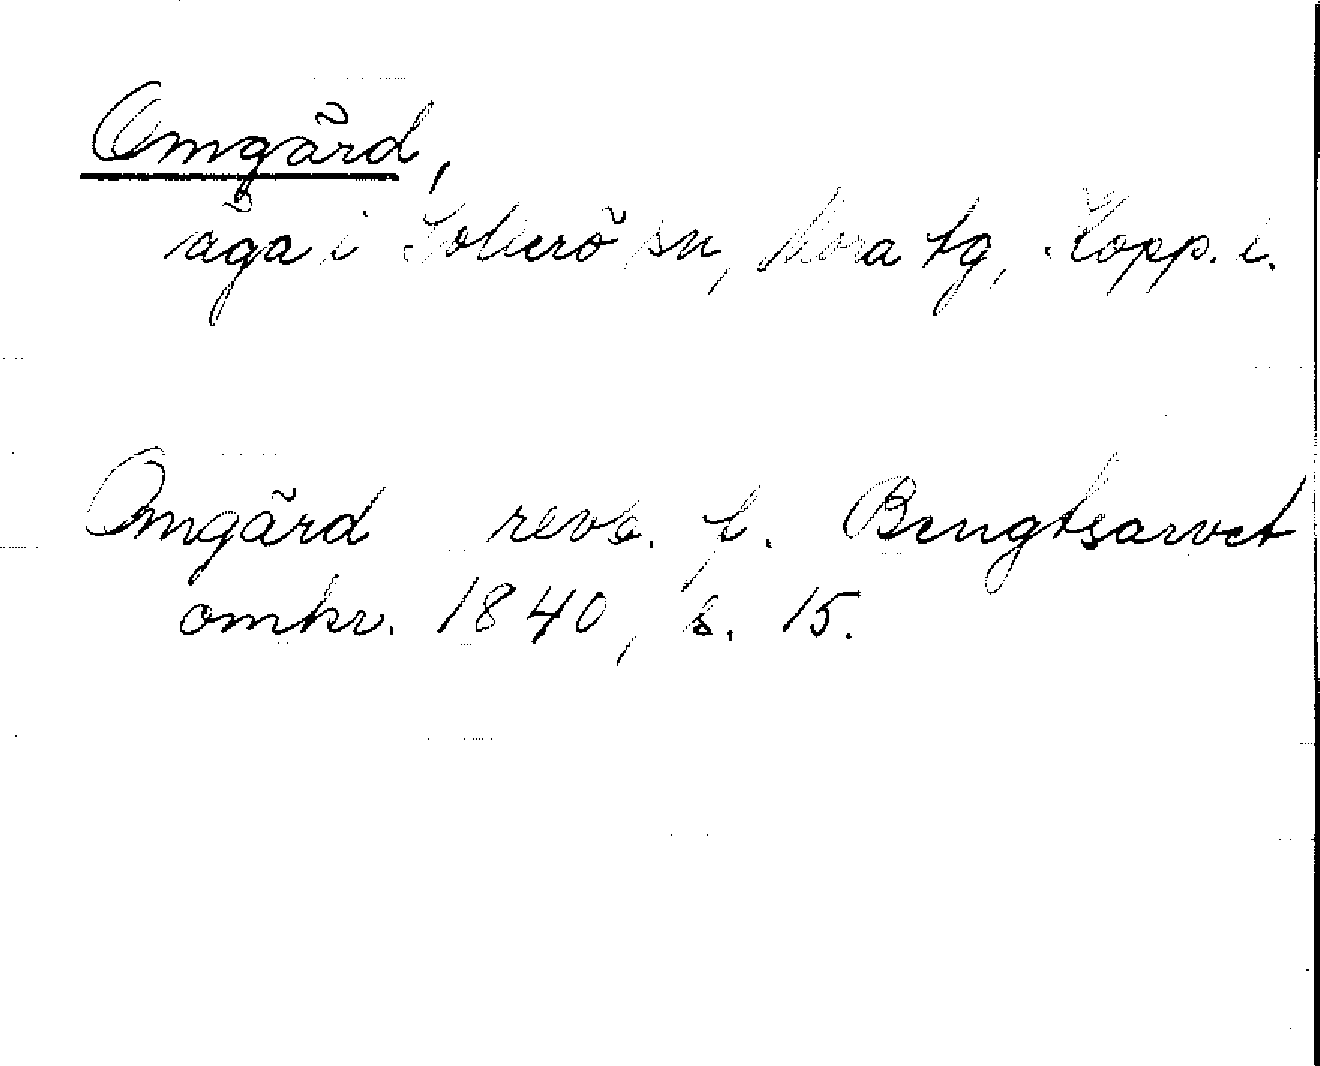 Omgärd,
äga i Sollerö sn, Mora tg, Kopp. l.
Omgärd revb. f. Bengtsarvet
omkr. 1840, s. 15.